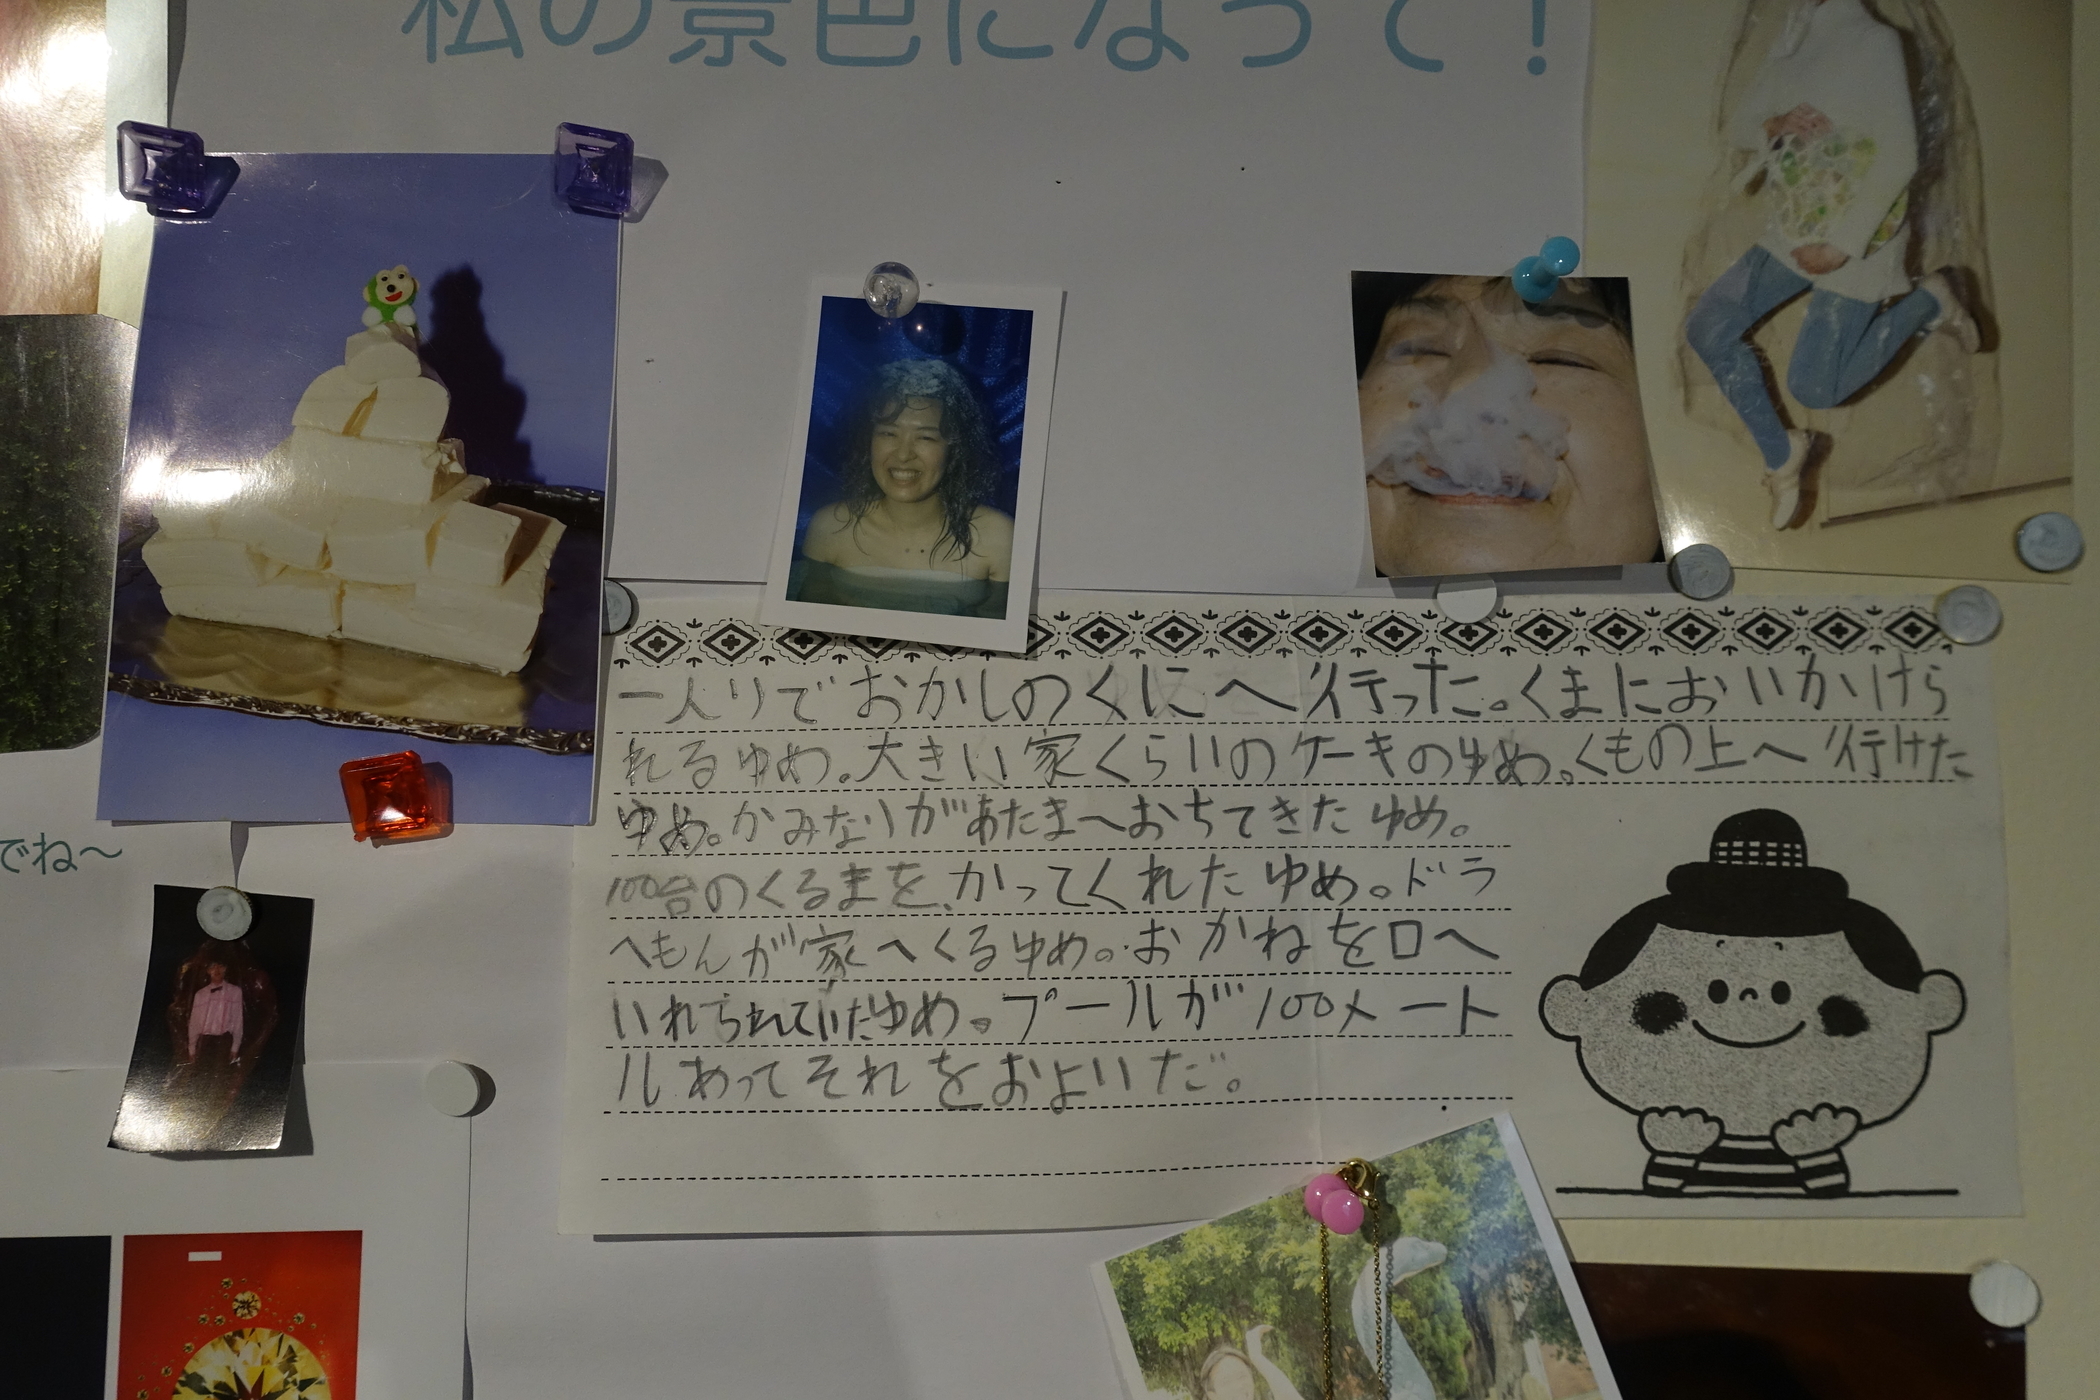 私の景色になって！
一人りでおかしのくにへ行った。くまにおいかけら
れるゆめ。大きい家くらいのケーキのゆめ。くもの上へ行けた
ゆめ。かみなりがあたまへおちてきたゆめ。
100台のくるまを、かってくれたゆめ。ドラ
へもんが家へくるゆめ。おかねを口へ
いれられていだゆめ。プールが100メート
ルあってそれをおよいだ。
でね〜